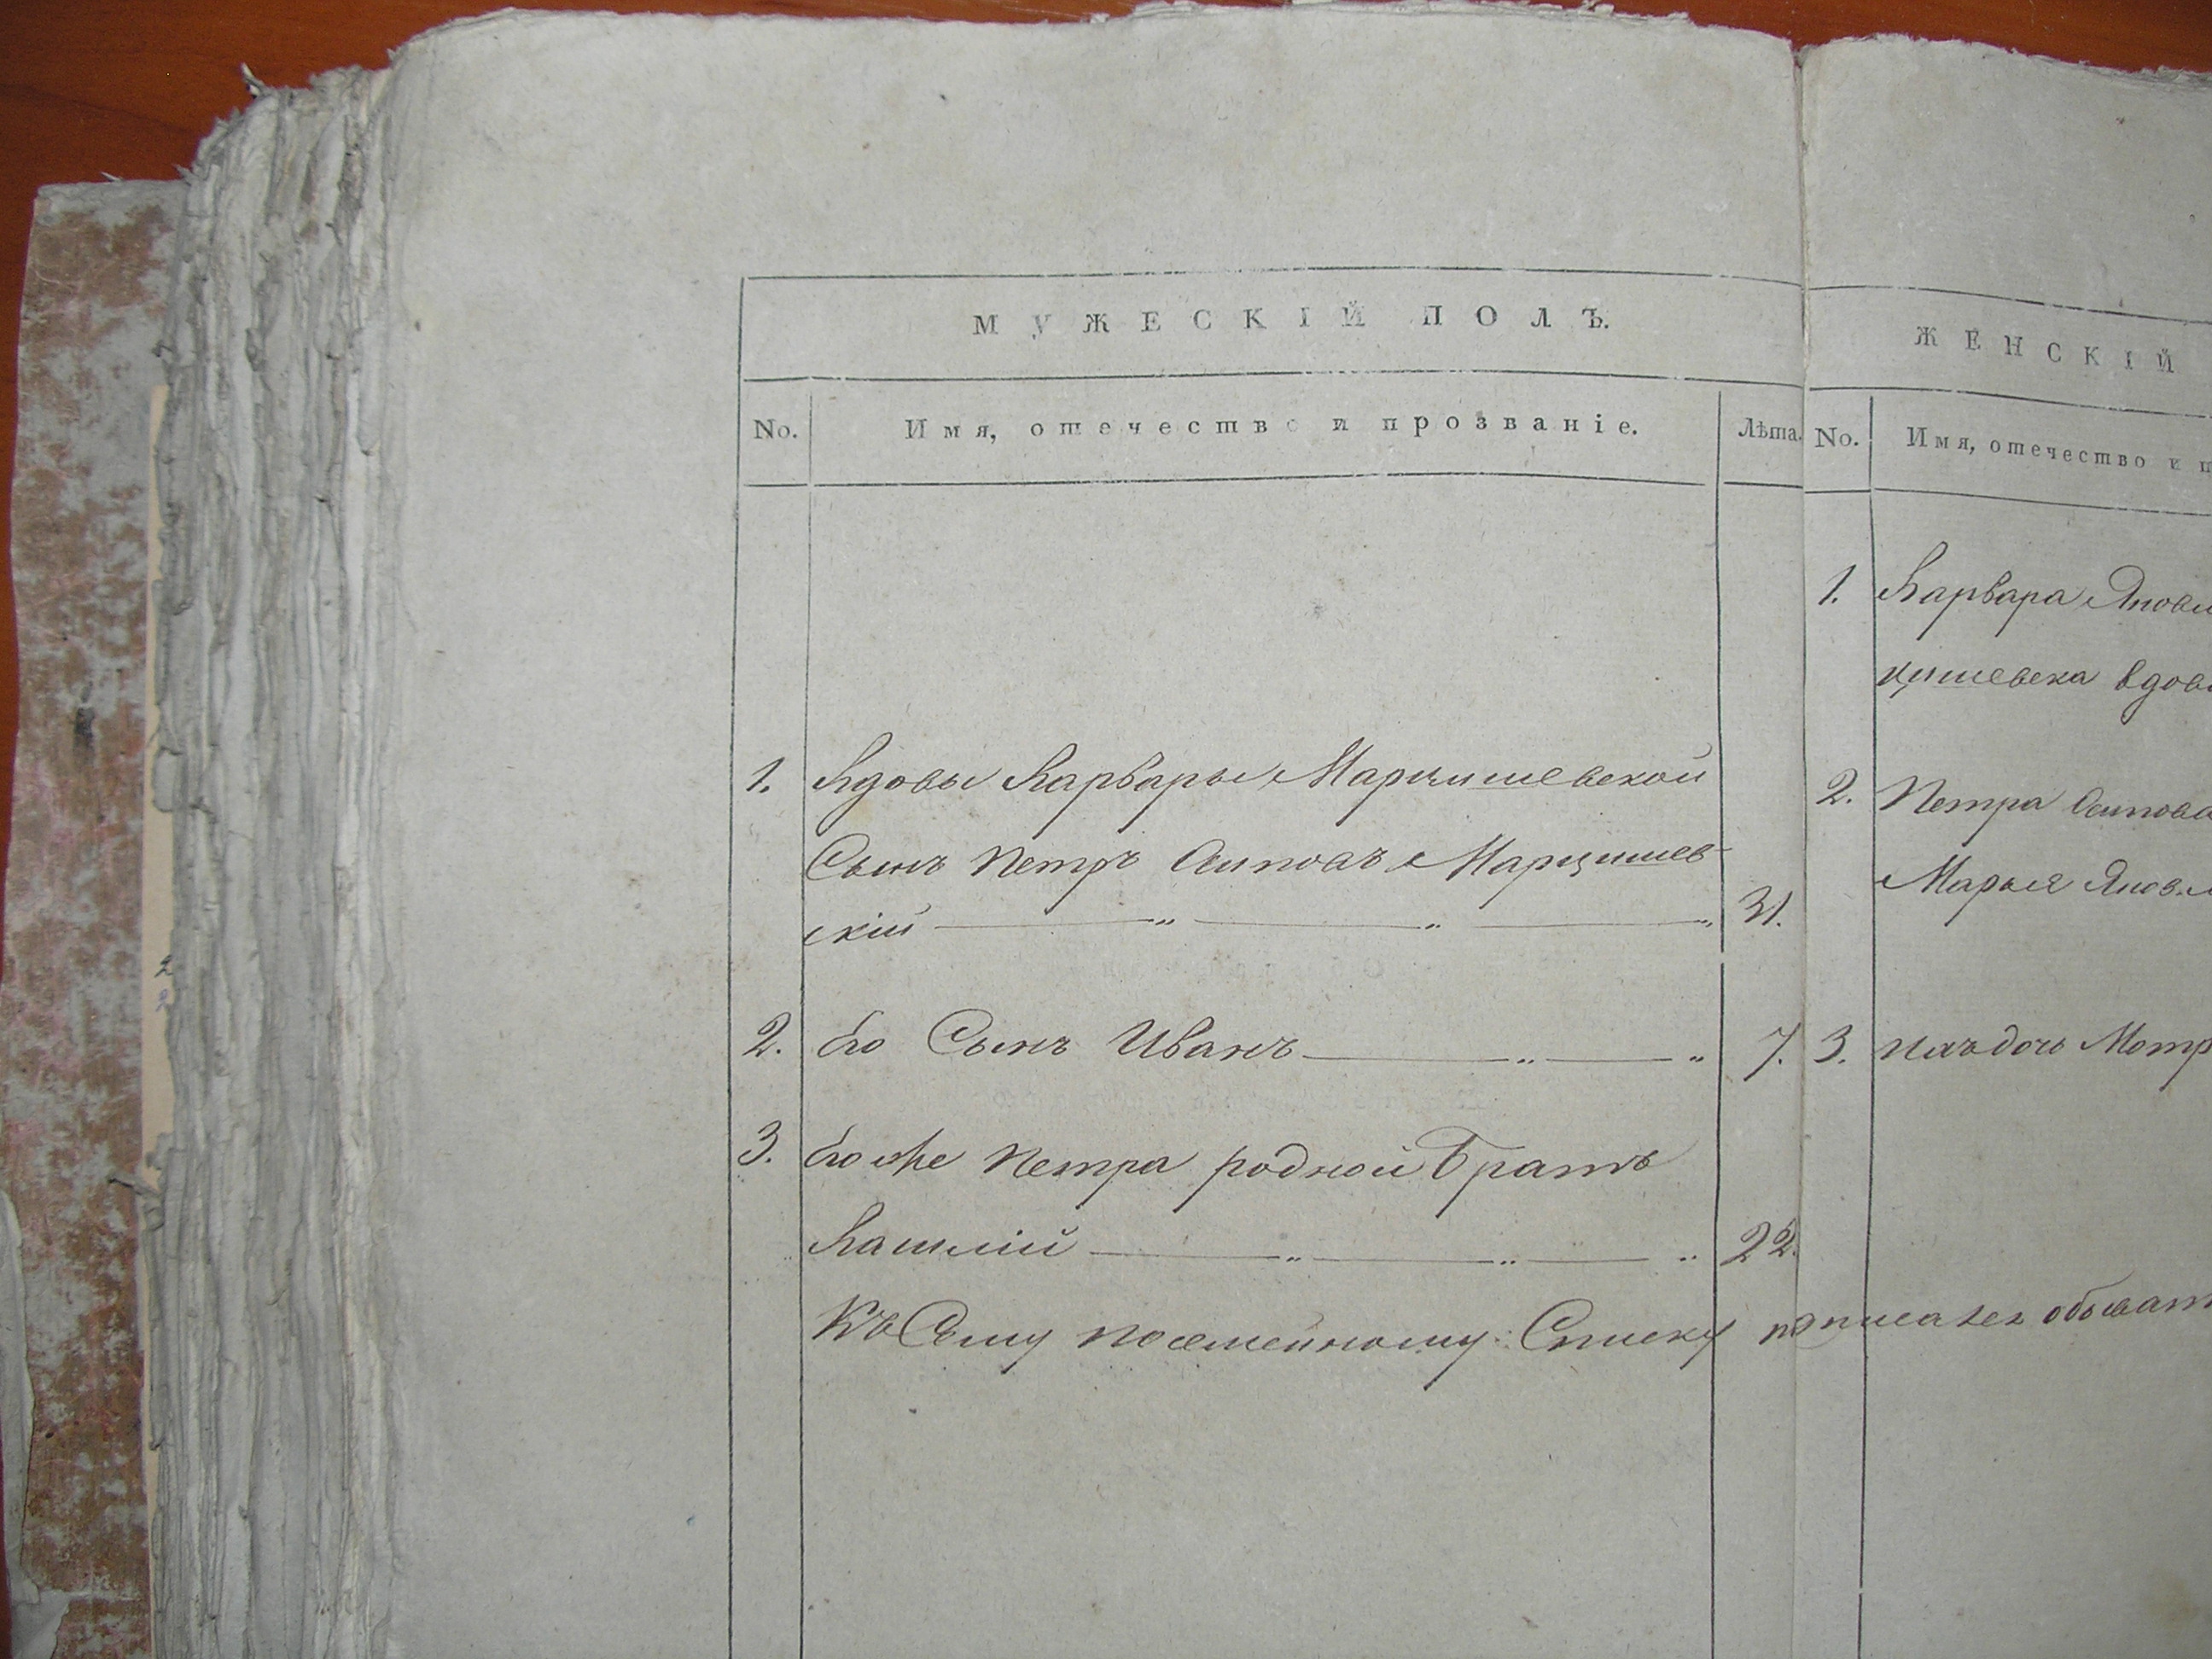 МУЖЕСКІЙ ПОЛЪ.
No. Имя, отечество и прозваніе. Лѣта.
1. Вдовы Варвары Марцишевской
Сынъ Петръ Осиповъ Марцишев-
скій 31.
2. Его Сынъ Иванъ 7.
3. Его же Петра родной Братъ
Василій 22.
Къ Сему посемейному Списку
ЖЕНСКІЙ
No. Имя, отечество и п
1. Варвара Яковл
цишевска вдов
2. Петра Осипова
Марья Яковл
3. Ихъ дочь Мотр